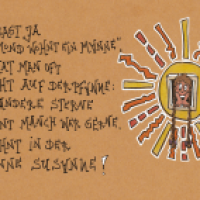 SAGT JA
MOND WOHNT EIN MÄNNE",
HAT MAN OFT
NICHT AUF DER PFANNE:
ANDERE STERNE
NT MANCH WER GERNE,
OHNT IN DER
NNE SUSANNE!